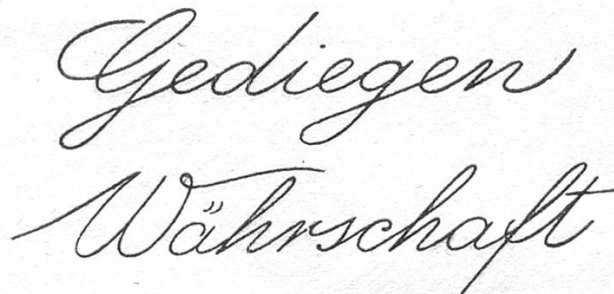 Gediegen
Währschaft